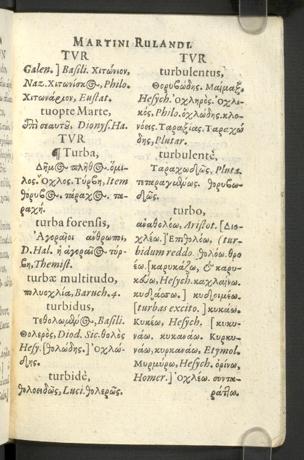 MARTINI RULANDI.
TVR
Galen.] Basili. Χιτώνιον,
Naz. Χιτωνίσκος, Philo.
Χιτωνάριον, Eustat.
tuopte Marte,
ἐπὶ σεαυτοῦ. Dionys. Ha.
TVR
¶ Turba,
Δῆμος πλῆθος. ὅμι-
λος. Ὄχλος. Τύρβη, Item
θόρυβος. τάραχος. τα-
ραχή.
turba forensis,
Ἀγοραῖοι ἄνθρωποι,
D. Hal. ἡ ἀγοραῖος τύρ-
βη, Themist.
turbæ multitudo,
πολυοχλία, Baruch. 4.
turbidus,
Τεθολωμένος, Basili.
Θολερὸς, Diod. Sic. θολὸς
Hesy. [θολώδης.] Ὀχλώ-
δης.
turbidè,
θολοειδῶς, Luci. θολερῶς.
TVR
turbulentus,
Θορυβώδης. Μαίμαξ.
Hesych. Ὀχληρὸς. Ὀχλι-
κὸς, Philo. ὀχλώδης. κλο-
νόεις. Ταραξίας. Ταραχώ
δης, Plutar.
turbulentè,
Ταραχωδῶς, Pluta.
τεταραγμένως. θορυβω-
δῶς.
turbo,
ἀναθολέω. Aristot. [Διο-
χλέω.] Ἐπιθολόω, (tur-
bidum reddo. θολόω. θρο
έω. [καρυκάζω, & καρυ-
κόω, Hesych.
κυδιμέω
[turbas excito.] κυκάω.
Κυκέω, Hesych. [κυκυ-
Etymol.
Μυρμύρω, Hesych. ὀρίνω,
Homer.] Ὀχλέω. συντα-
ράττω.